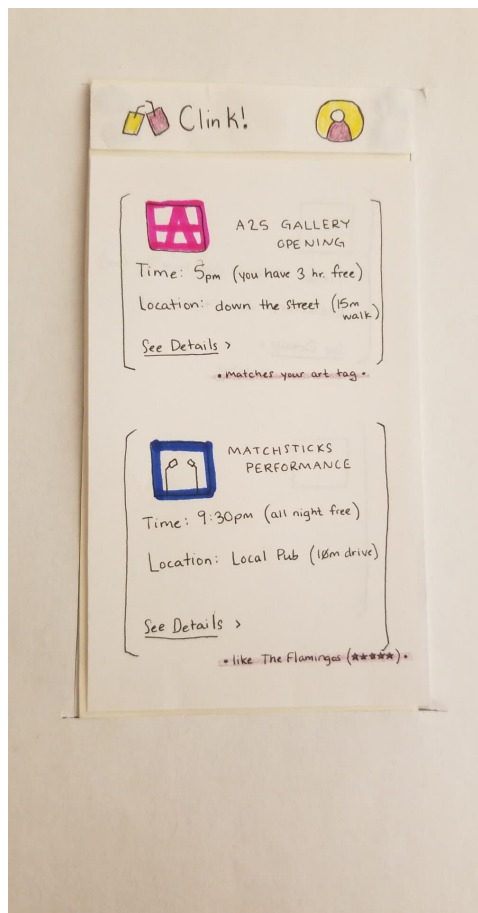 Clink!
A25 GALLERY
OPENING
Time: 5pm (you have 3 hr. free)
Location: down the street (15m
walk)
See Details >
• matches your art tag •
MATCHSTICKS
PERFORMANCE
Time: 9:30pm (all night free)
Location: Local Pub (10m drive)
See Details >
• like The Flamingos (★★★★★) •